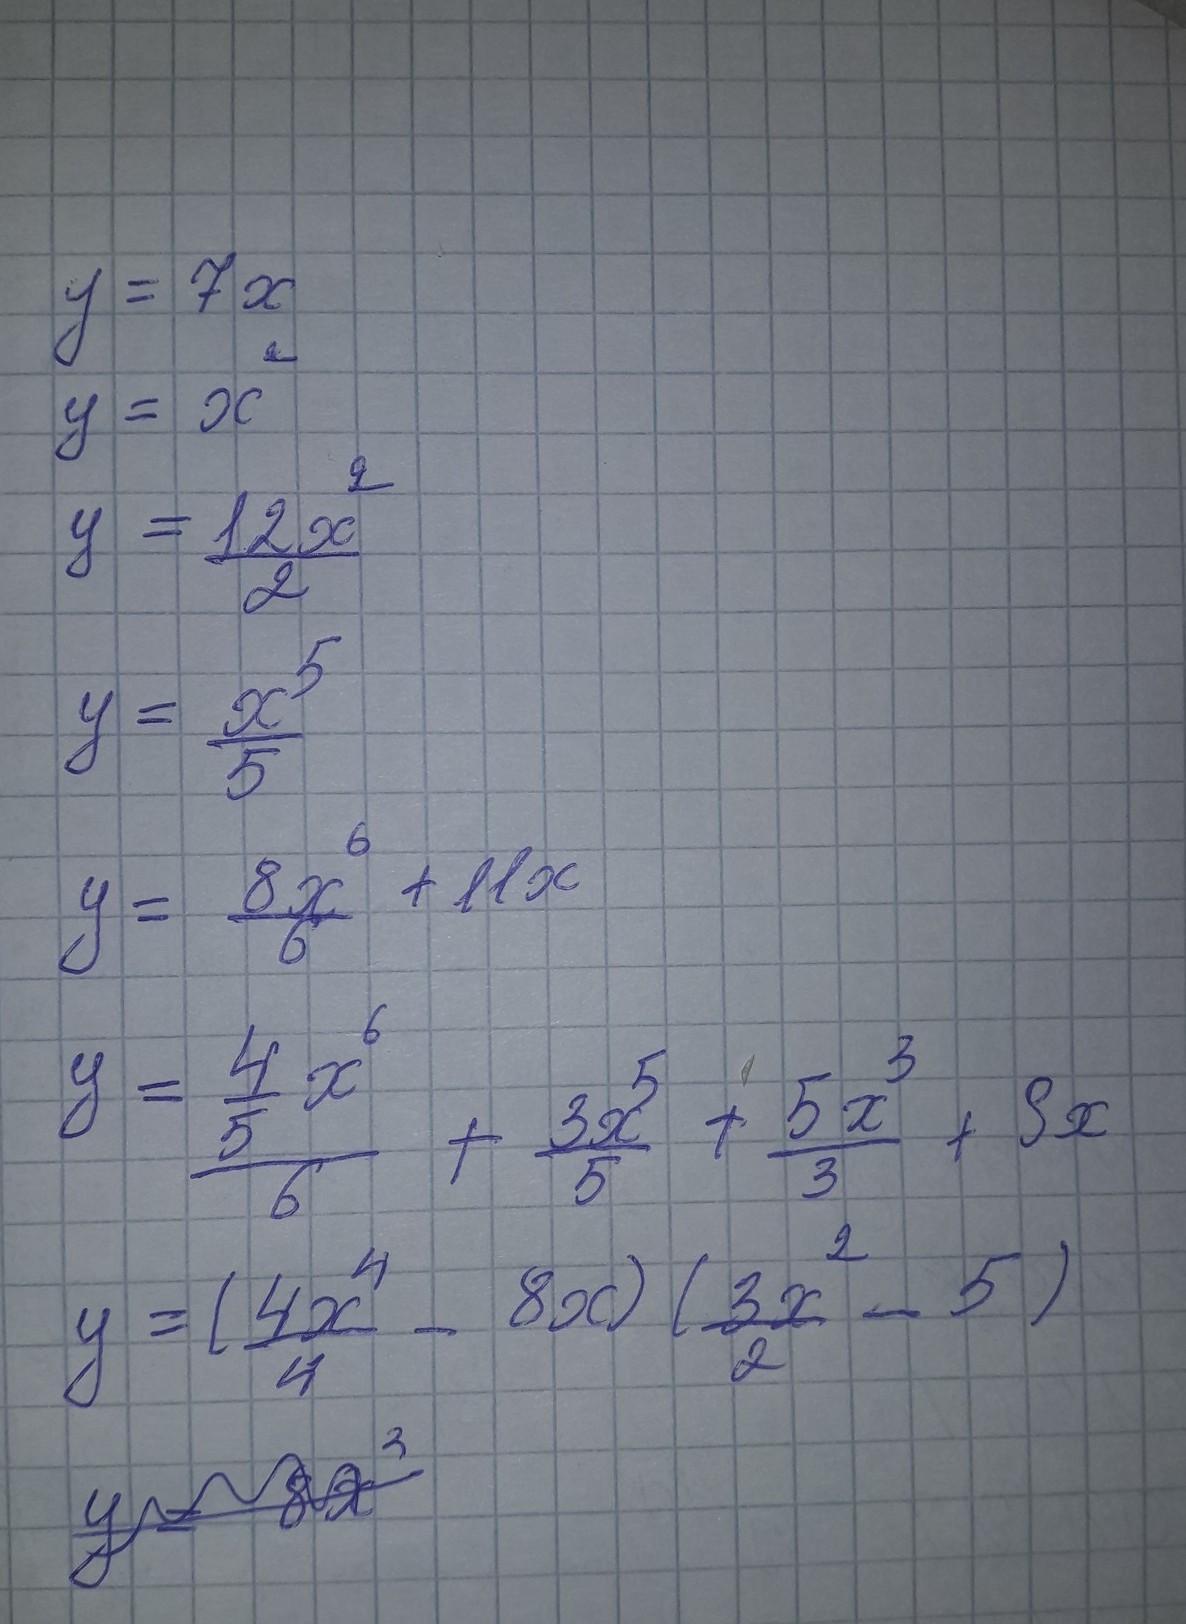 y = 7x
y = x²
y = 12x²/2
y = x⁵/5
y = 8x⁶/6 + 11x
y = (4/5 x⁶)/6 + 3x⁵/5 + 5x³/3 + 9x
y = (4x⁴/4 - 8x)(3x²/2 - 5)
y = 8x³